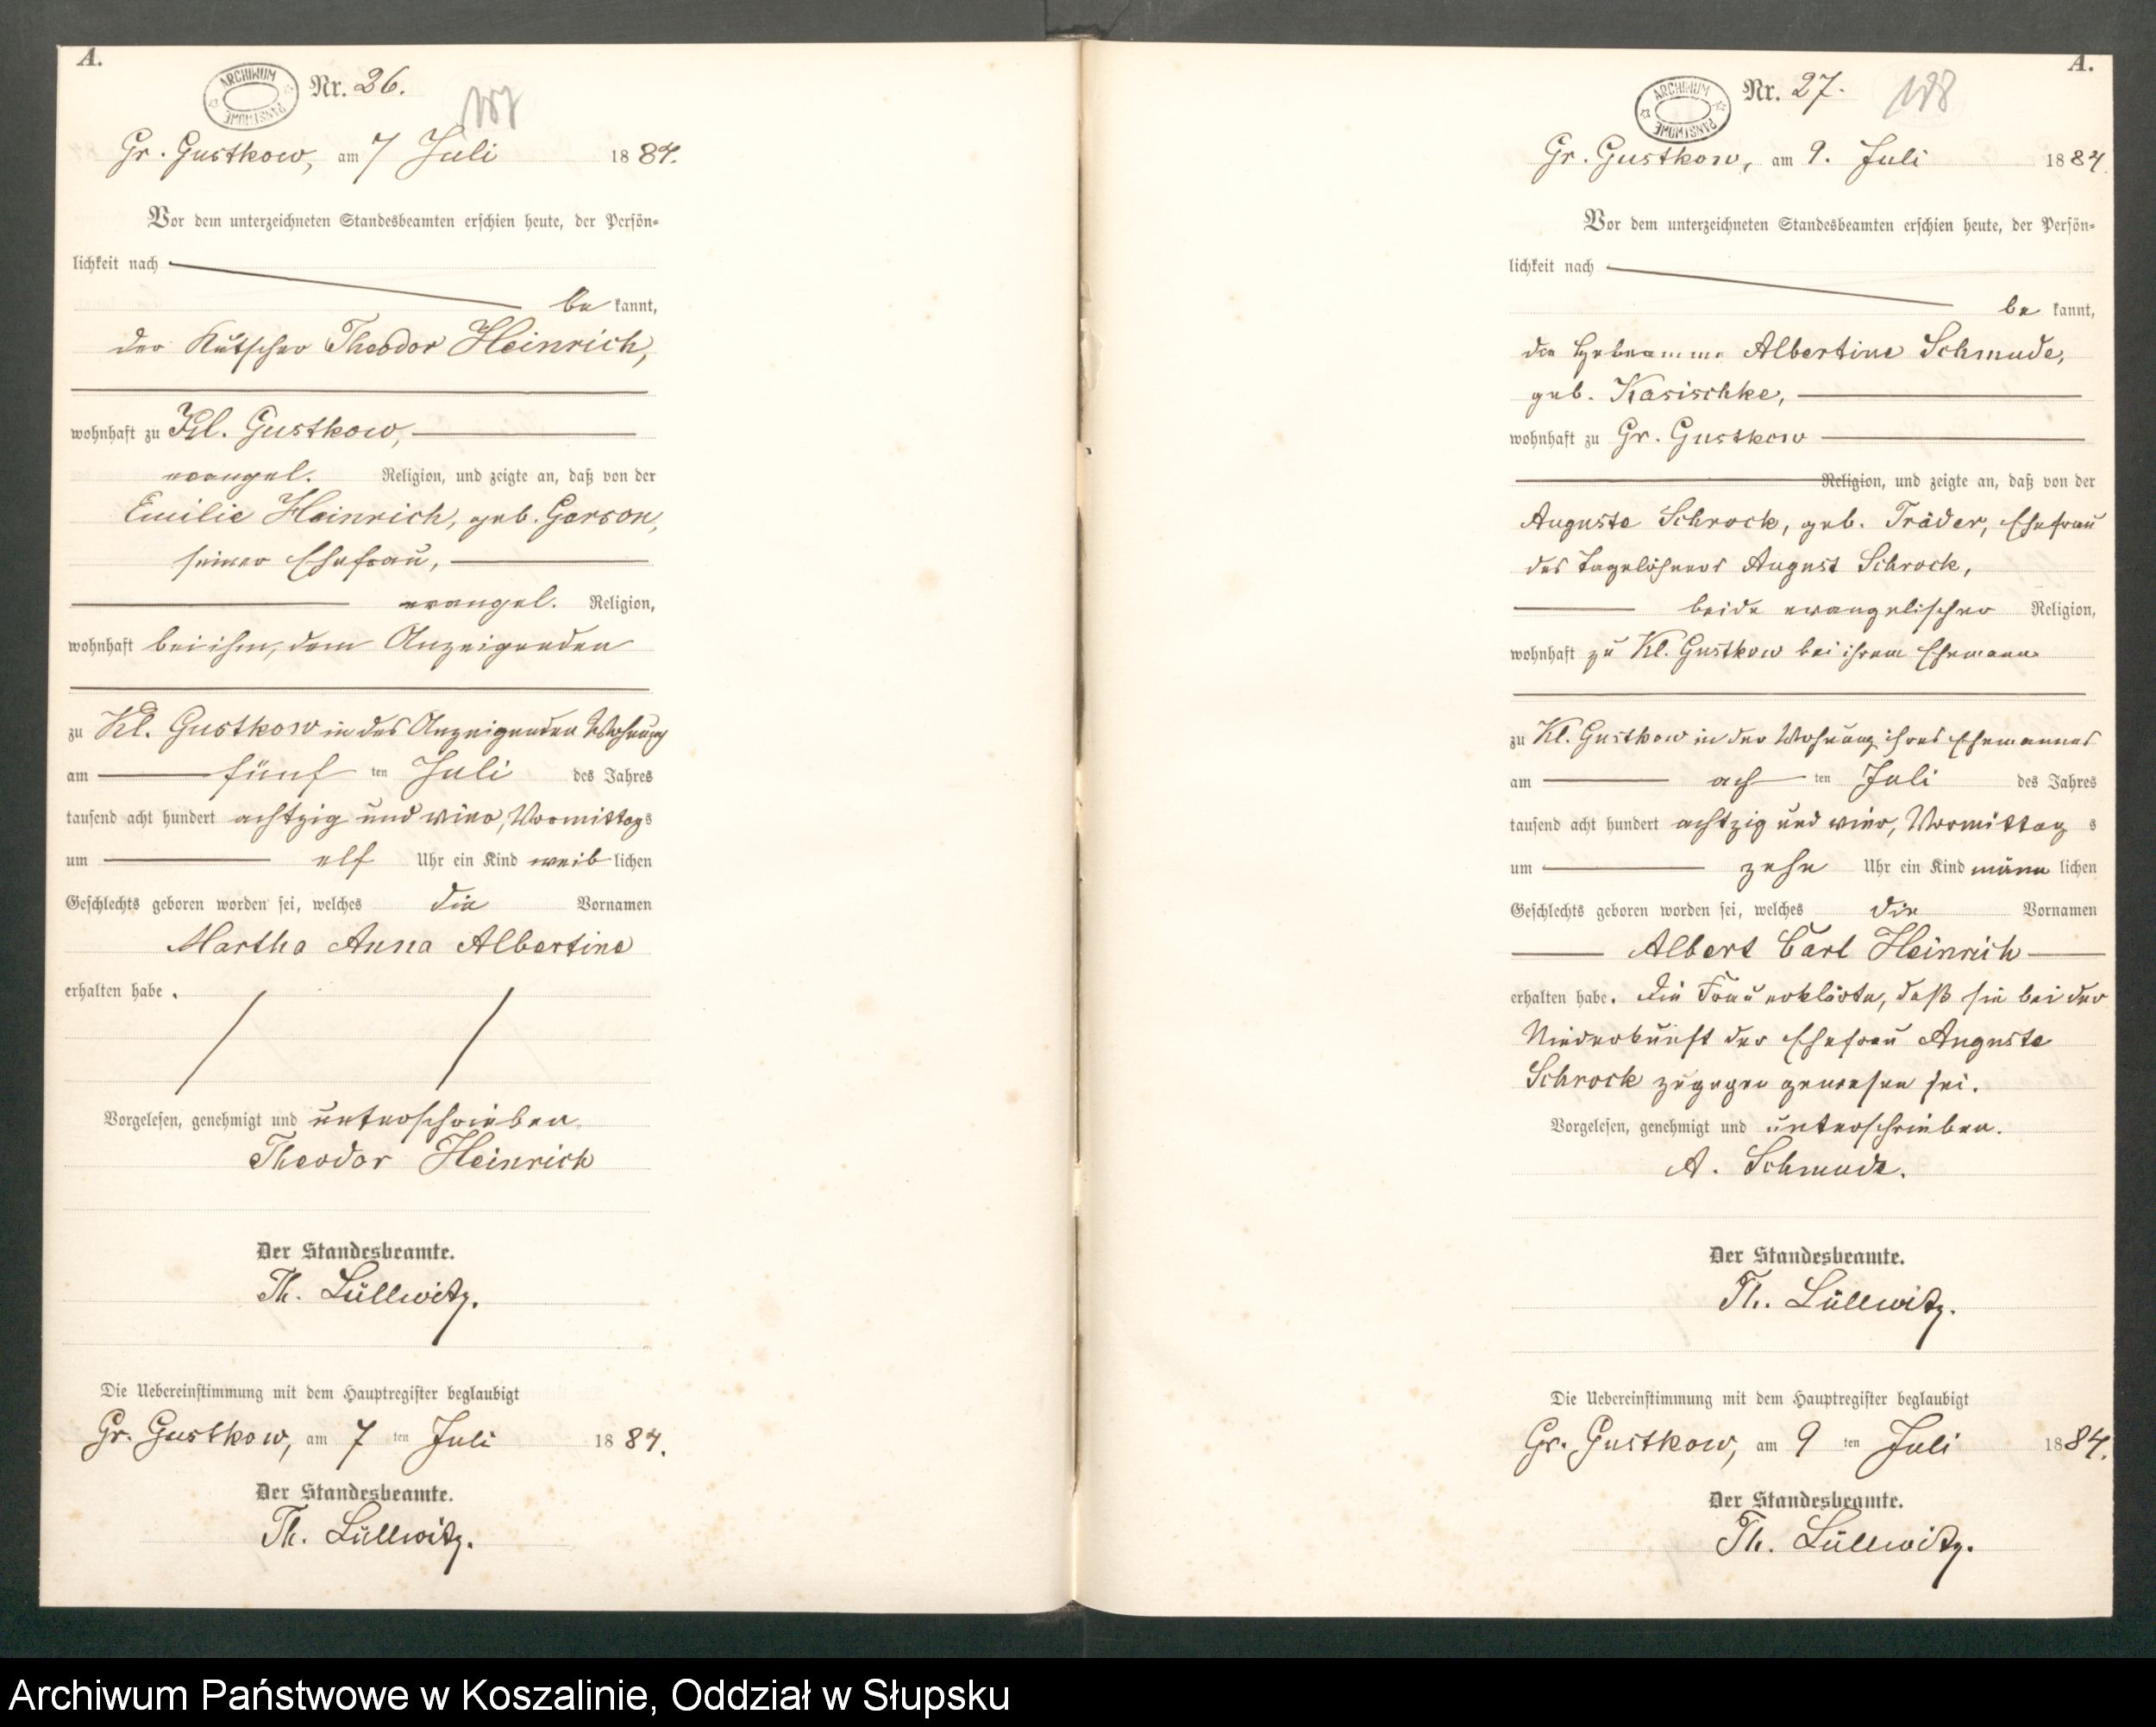 A.
ARCHIWUM PAŃSTWOWE
Nr. 26.
187
Gr. Gustkow, am 7 Juli 1884.
Vor dem unterzeichneten Standesbeamten erschien heute, der Persön-
lichkeit nach
be kannt,
der Kutscher Theodor Heinrich,
wohnhaft zu Kl. Gustkow,
evangel. Religion, und zeigte an, daß von der
Emilie Heinrich, geb. Gerson,
seiner Ehefrau,
evangel. Religion,
wohnhaft bei ihm, dem Anzeigenden
zu Kl. Gustkow in des Anzeigenden Wohnung
am fünf ten Juli des Jahres
tausend acht hundert achtzig und vier, Vormittags
um elf Uhr ein Kind weib lichen
Geschlechts geboren worden sei, welches die Vornamen
Martha Anna Albertine
erhalten habe.
Vorgelesen, genehmigt und unterschrieben
Theodor Heinrich
Der Standesbeamte.
Th. Lüllwitz.
Die Uebereinstimmung mit dem Hauptregister beglaubigt
Gr. Gustkow, am 7 ten Juli 1884.
Der Standesbeamte.
Th. Lüllwitz.
A.
ARCHIWUM PAŃSTWOWE
Nr. 27.
188
Gr. Gustkow, am 9. Juli 1884.
Vor dem unterzeichneten Standesbeamten erschien heute, der Persön-
lichkeit nach
be kannt,
die Hebeamme Albertine Schmude,
geb. Kasischke,
wohnhaft zu Gr. Gustkow
Religion, und zeigte an, daß von der
Auguste Schrock, geb. Träder, Ehefrau
des Tagelöhners August Schrock,
beide evangelischer Religion,
wohnhaft zu Kl. Gustkow bei ihrem Ehemann
zu Kl. Gustkow in der Wohnung ihres Ehemannes
am ach ten Juli des Jahres
tausend acht hundert achtzig und vier, Vormittag s
um zehn Uhr ein Kind männ lichen
Geschlechts geboren worden sei, welches die Vornamen
Albert Carl Heinrich
erhalten habe. Die Frau erklärte, daß sie bei der
Niederkunft der Ehefrau Auguste
Schrock zugegen gewesen sei.
Vorgelesen, genehmigt und unterschrieben.
A. Schmude.
Der Standesbeamte.
Th. Lüllwitz.
Die Uebereinstimmung mit dem Hauptregister beglaubigt
Gr. Gustkow, am 9 ten Juli 1884.
Der Standesbeamte.
Th. Lüllwitz.
Archiwum Państwowe w Koszalinie, Oddział w Słupsku